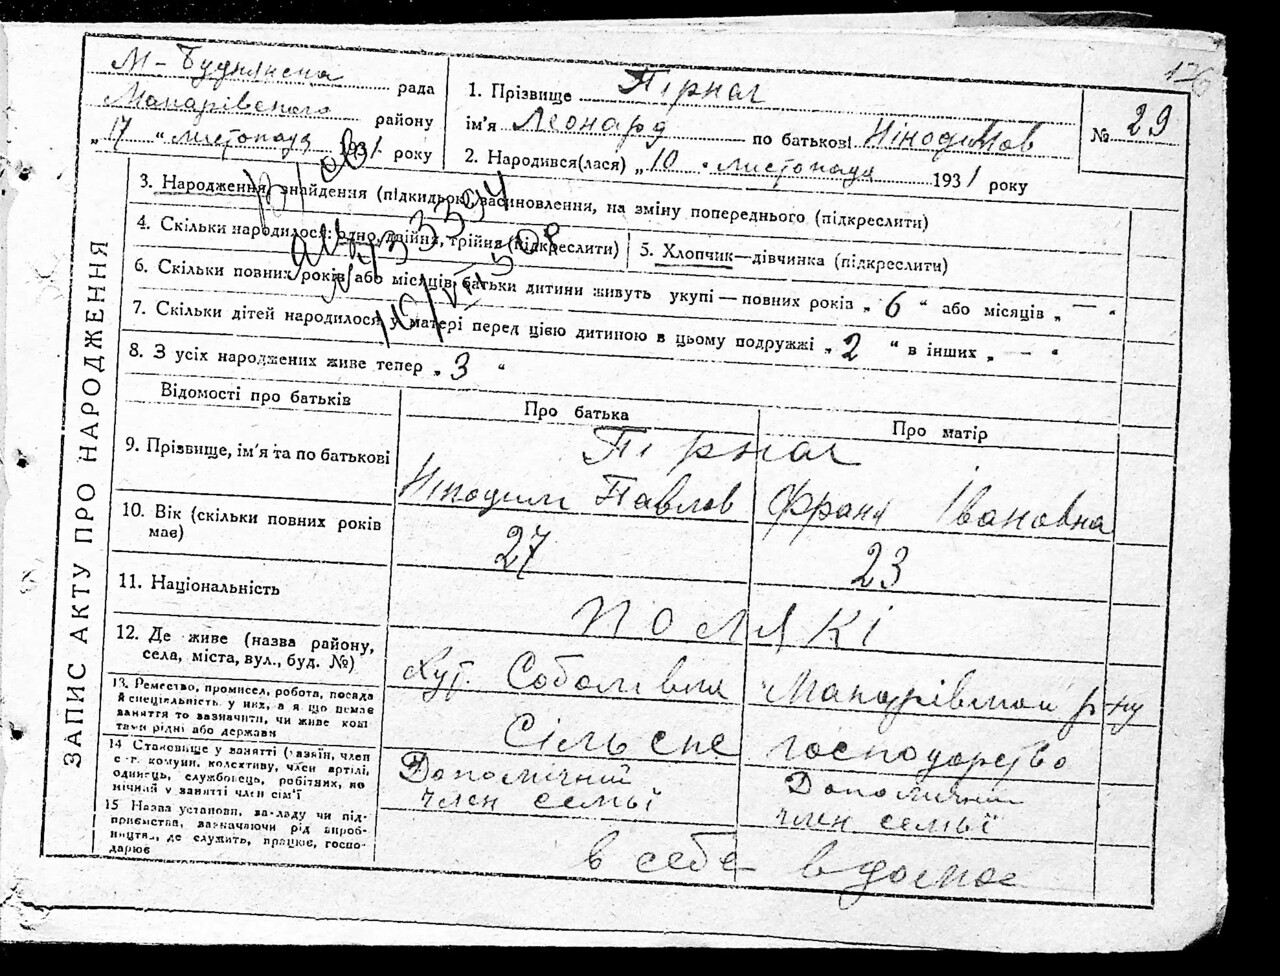 126
М-Буднянська рада
Макарівського району
„17 “ листопада 1931 року
1. Прізвище Пірнач
ім'я Леонард по батькові Нікодимов
2. Народився(лася) „10 “ листопада 1931 року
№ 29
ЗАПИС АКТУ ПРО НАРОДЖЕННЯ
3. Народження, знайдення (підкидьок), засиновлення, на зміну попереднього (підкреслити)
4. Скільки народилося: одно, двійня, трійня (підкреслити)
5. Хлопчик—дівчинка (підкреслити)
6. Скільки повних років або місяців батьки дитини живуть укупі — повних років „ 6 “ або місяців „ — “
7. Скільки дітей народилося у матері перед цією дитиною в цьому подружжі „ 2 “ в інших „ — “
8. З усіх народжених живе тепер „ 3 “
Відомості про батьків
Про батька
Про матір
9. Прізвище, ім'я та по батькові
Пірнач
Нікодим Павлов
Франя Івановна
10. Вік (скільки повних років має)
27
23
11. Національність
Полякі
12. Де живе (назва району, села, міста, вул., буд. №)
Хут. Соболівка Макарівської р-ну
13. Ремество, промисел, робота, посада й спеціяльність у них, а я що немає заняття то зазначити, чи живе кошттами рідні або держави
Сільське господарство
14 Становище у занятті (хазяїн, член с.-г. комуни, колективу, член артілі, одинець, службовець, робітник, помічний у занятті член сім'ї
Допомічний
член семьї
Допомічний
член семьї
15 Назва установи, закладу чи підприємства, зазначаючи рід виробництва, де служить, працює, господарює
в себе вдома